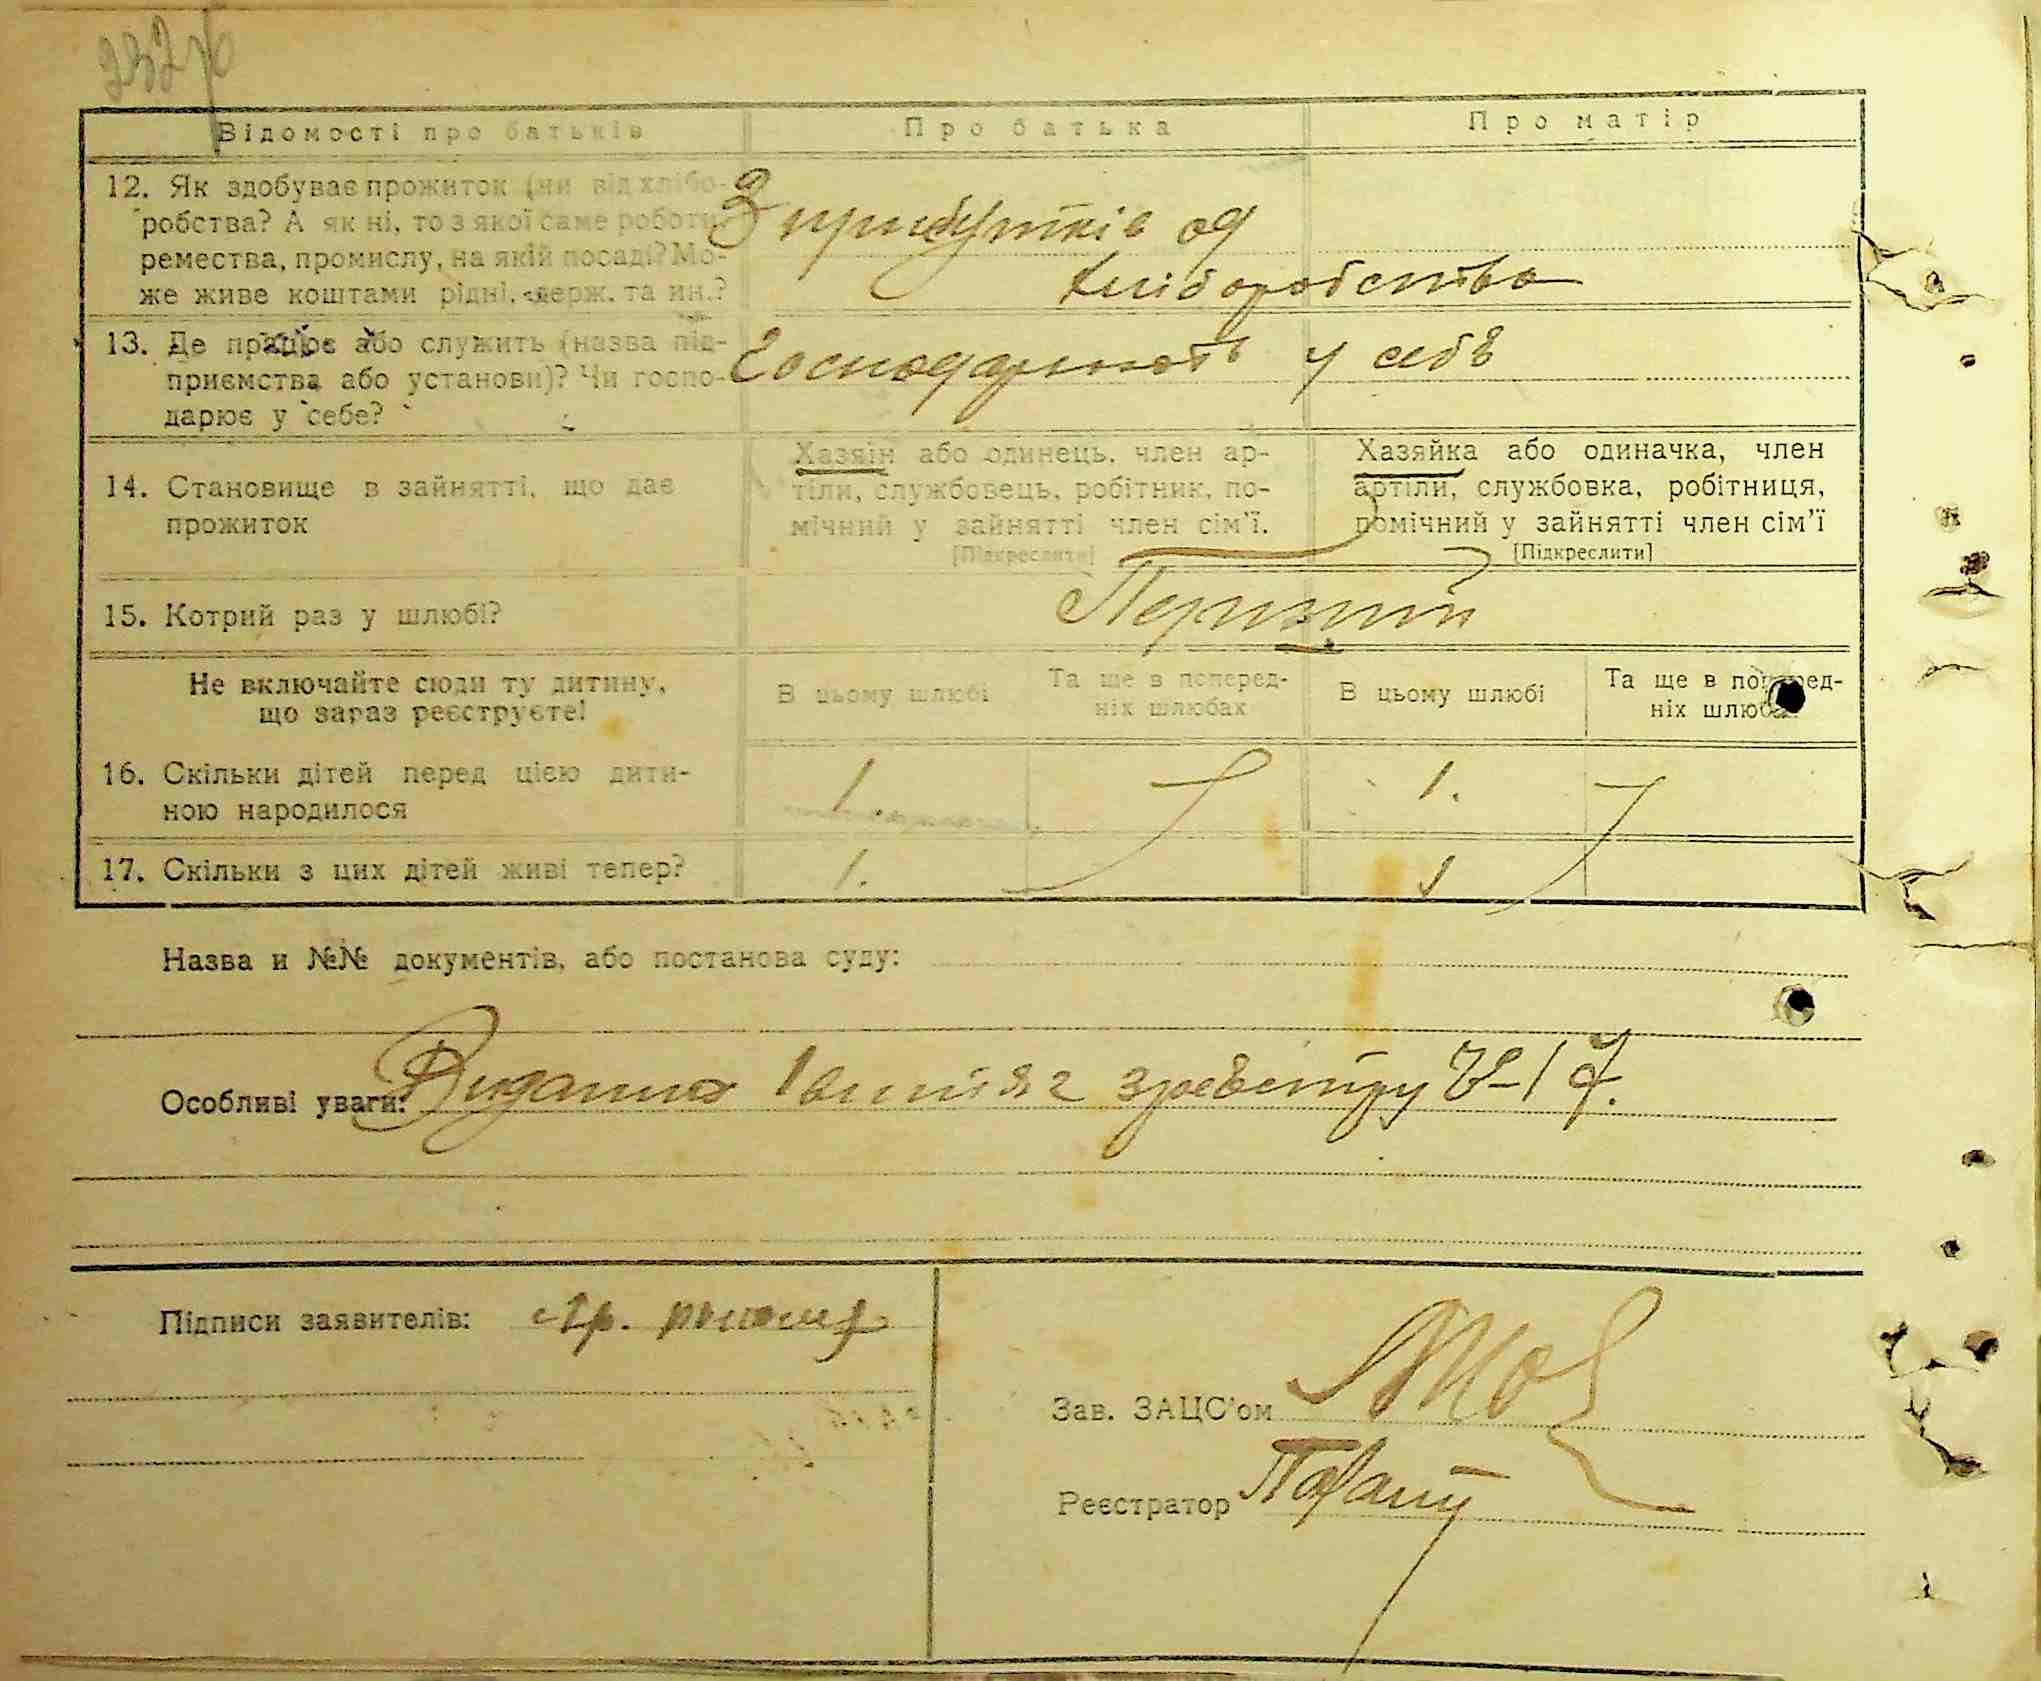 232
Відомості про батьків
Про батька
Про матір
12. Як здобуває прожиток (чи від хлібо-
робства? А як ні, то з якої саме роботи
ремества, промислу, на якій посаді? Мо-
же живе коштами рідні, держ. та ин.?
З прибутків од
хліборобства
13. Де працює або служить (назва під-
приємства або установи)? Чи госпо-
дарює у себе?
Господарюють у себе
14. Становище в зайнятті, що дає
прожиток
Хазяїн або одинець, член ар-
тіли, службовець, робітник, по-
мічний у зайнятті член сім'ї.
[Підкреслити]
Хазяйка або одиначка, член
артіли, службовка, робітниця,
помічний у зайнятті член сім'ї
[Підкреслити]
15. Котрий раз у шлюбі?
Перший
Не включайте сюди ту дитину,
що зараз реєструєте!
В цьому шлюбі
Та ще в поперед-
ніх шлюбах
В цьому шлюбі
Та ще в поперед-
ніх шлюбах
16. Скільки дітей перед цією дити-
ною народилося
1.
1.
17. Скільки з цих дітей живі тепер?
1.
1
Назва и №№ документів, або постанова суду:
Особливі уваги:
Підписи заявителів:
Зав. ЗАЦС'ом
Реєстратор